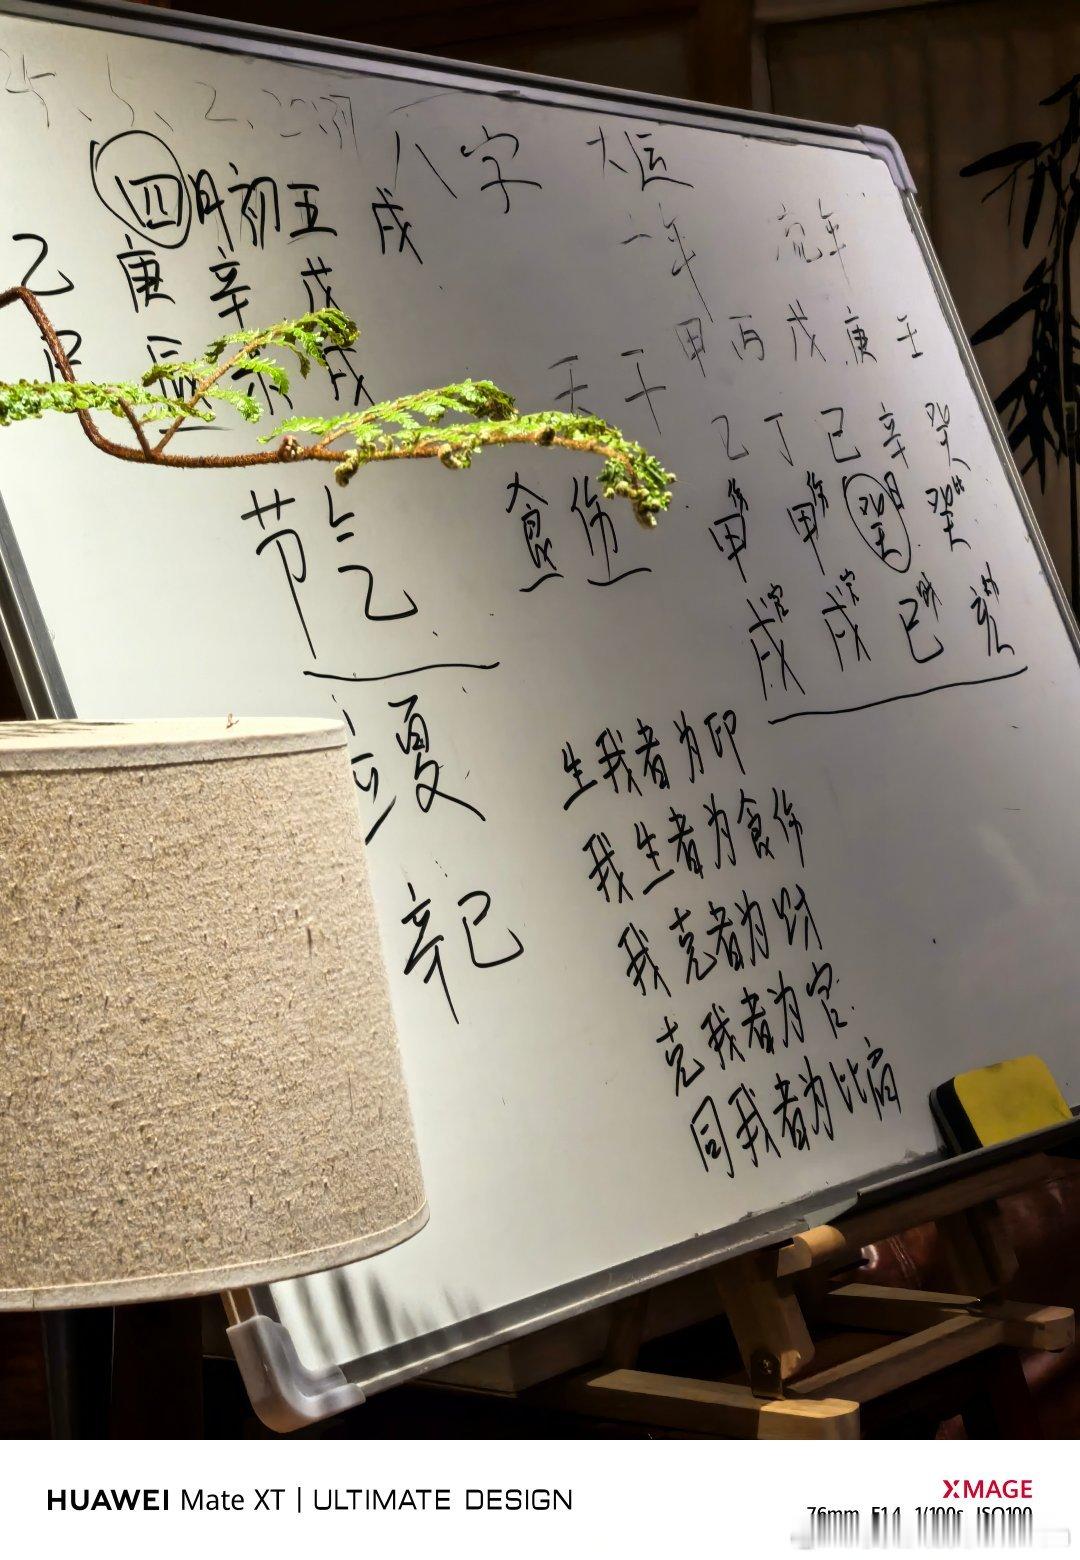 八字 大运
四月初五 戌
一年 流年
乙 庚 辛 戊
甲 丙 戊 庚 壬
天干
乙 丁 己 辛 癸
节气
食伤
甲伤 甲伤 癸日 癸比
戌官 戌官 巳财 亥劫
立夏
辛巳
生我者为印
我生者为食伤
我克者为财
克我者为官
同我者为比肩
HUAWEI Mate XT | ULTIMATE DESIGN
XMAGE
76mm F1.4 1/100s ISO100